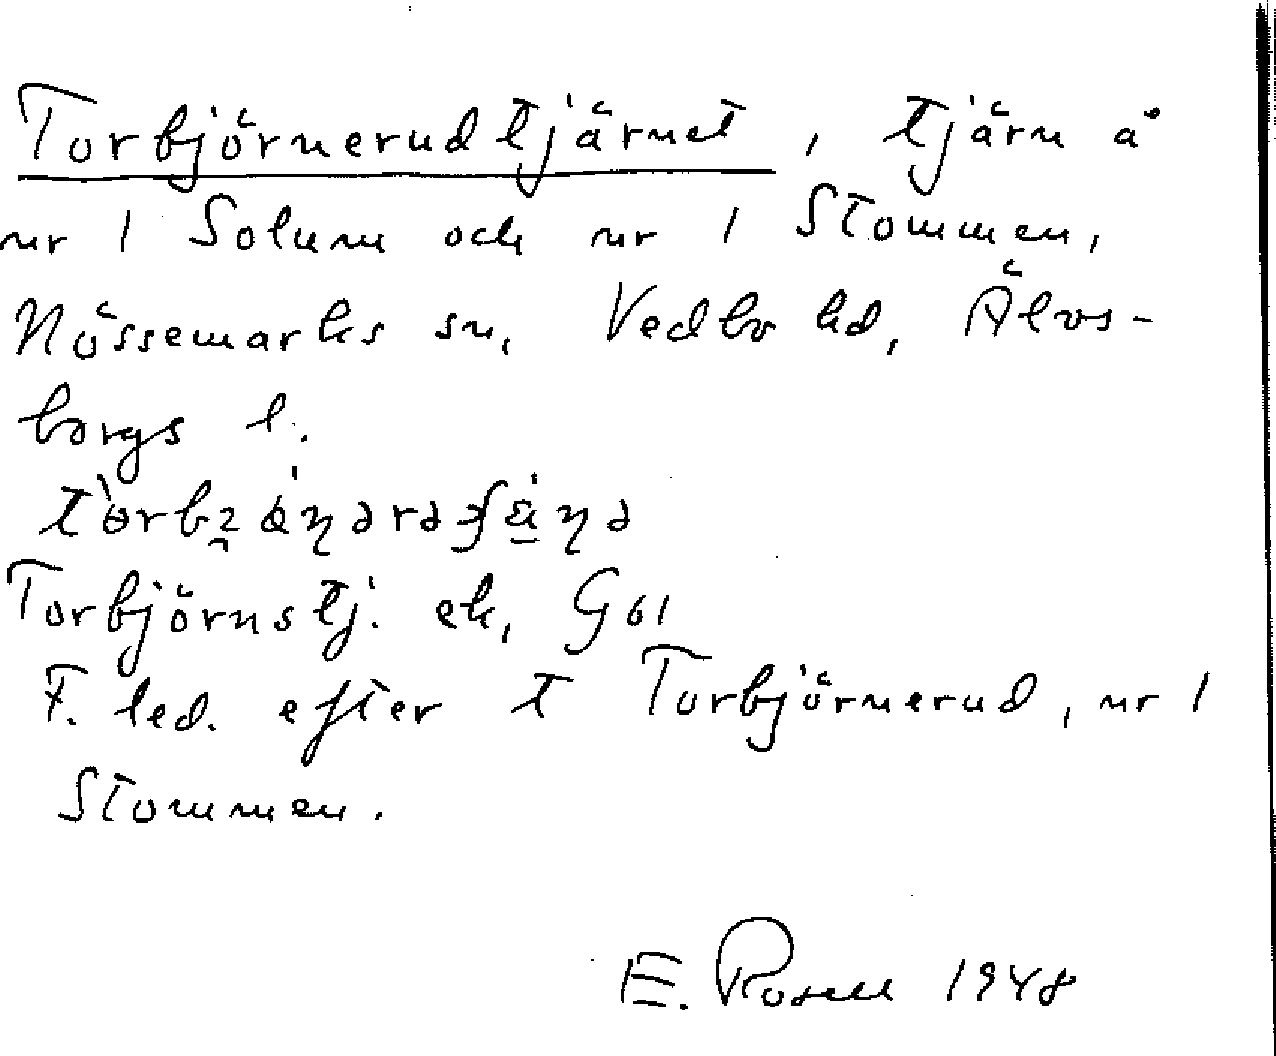 Torbjörnerudtjärnet, tjärn å
nr 1 Solum och nr 1 Stommen,
Nössemarks sn, Vedbo hd, Älvs-
borgs l.
Torbjörnstj. ek, G61
F. led. efter t Torbjörnerud, nr 1
Stommen.
E. Rosell 1948